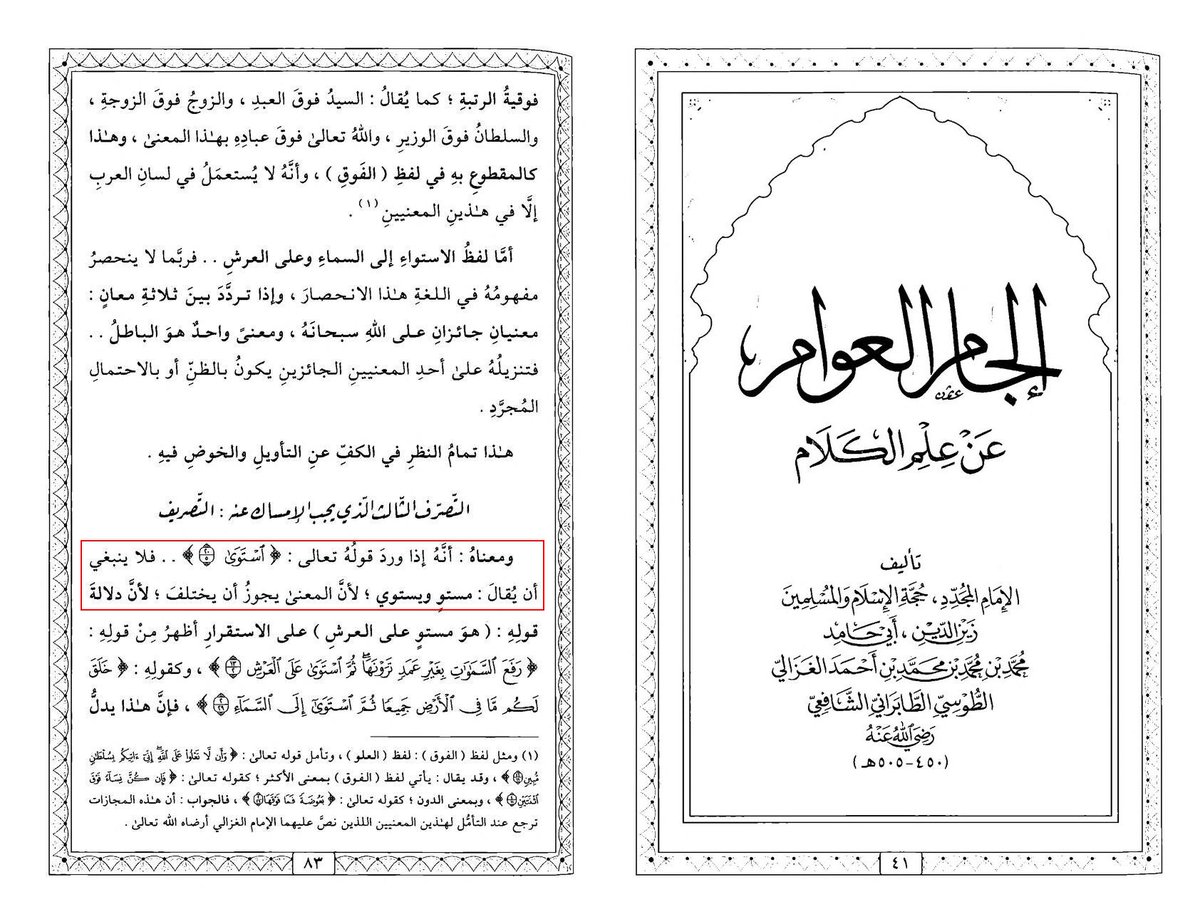 إلجام العوام
عَنْ عِلْمِ الكَلَامِ
تأليف
الإمام المجدِّد، حُجَّة الإسلام والمسلمين
زين الدين، أبي حامد
محمد بن محمد بن محمد بن أحمد الغزالي
الطوسي الطابراني الشافعي
رَضِيَ اللهُ عَنْهُ
(٤٥٠-٥٠٥هـ)
٤١
فوقيةُ الرتبةِ ؛ كما يُقالُ : السيدُ فوقَ العبدِ ، والزوجُ فوقَ الزوجةِ ،
والسلطانُ فوقَ الوزيرِ ، واللهُ تعالىٰ فوقَ عبادِهِ بهـٰذا المعنىٰ ، وهـٰذا
كالمقطوعِ بهِ في لفظِ ( الفَوقِ ) ، وأنَّهُ لا يُستعمَلُ في لسانِ العربِ
إلَّا في هـٰذينِ المعنيينِ (١) .
أمَّا لفظُ الاستواءِ إلى السماءِ وعلى العرشِ . . فربَّما لا ينحصرُ
مفهومُهُ في اللغةِ هـٰذا الانحصارَ ، وإذا تردَّدَ بينَ ثلاثةِ معانٍ :
معنيانِ جائزانِ على اللهِ سبحانَهُ ، ومعنىً واحدٌ هوَ الباطلُ . .
فتنزيلُهُ علىٰ أحدِ المعنيينِ الجائزينِ يكونُ بالظنِّ أو بالاحتمالِ
المُجرَّدِ .
هـٰذا تمامُ النظرِ في الكفِّ عنِ التأويلِ والخوضِ فيهِ .
التصرّف الثالث الذي يجب الإمساك عنه : التصريف
ومعناهُ : أنَّهُ إذا وردَ قولُهُ تعالى : ﴿ ٱسْتَوَىٰ ﴾ . . فلا ينبغي
أن يُقالَ : مستوٍ ويستوي ؛ لأنَّ المعنىٰ يجوزُ أن يختلفَ ؛ لأنَّ دلالةَ
قولِهِ : ( هوَ مستوٍ على العرشِ ) على الاستقرارِ أظهرُ مِنْ قولِهِ :
﴿ رَفَعَ ٱلسَّمَـٰوَٰتِ بِغَيْرِ عَمَدٍ تَرَوْنَهَا ۖ ثُمَّ ٱسْتَوَىٰ عَلَى ٱلْعَرْشِ ﴾ ، وكقولِهِ : ﴿ خَلَقَ
لَكُم مَّا فِى ٱلْأَرْضِ جَمِيعًا ثُمَّ ٱسْتَوَىٰٓ إِلَى ٱلسَّمَآءِ ﴾ ، فإنَّ هـٰذا يدلُّ
(١) ومثل لفظ ( الفوق ) : لفظ ( العلو ) ، وتأمل قوله تعالىٰ : ﴿ وَأَن لَّا تَعْلُوا۟ عَلَى ٱللَّهِ ۖ إِنِّىٓ ءَاتِيكُم بِسُلْطَـٰنٍ
مُّبِينٍ ﴾ ، وقد يقال : يأتي لفظ ( الفوق ) بمعنى الأكثر ؛ كقوله تعالىٰ : ﴿ فَإِن كُنَّ نِسَآءً فَوْقَ
ٱثْنَتَيْنِ ﴾ ، وبمعنى الدون ؛ كقوله تعالىٰ : ﴿ بَعُوضَةً فَمَا فَوْقَهَا ﴾ ، فالجواب : أن هـٰذه المجازات
ترجع عند التأمُّل لهـٰذين المعنيين اللذين نصَّ عليهما الإمام الغزالي أرضاه الله تعالىٰ .
٨٣